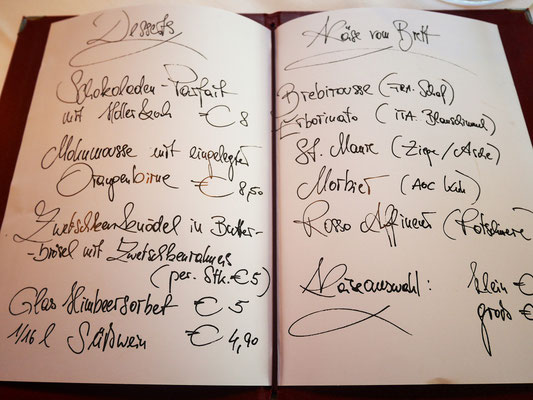 Desserts
Schokoladen-Parfait
mit € 8
Mohnmousse mit eingelegter
Orangenbirne € 8,50
Zwetschkenknödel in Butter-
-brösel mit Zwetschkenrahmeis
(per. Stk. € 5)
Glas Himbeersorbet € 5
1/16 l Süßwein € 4,90
Käse vom Brett
Brebirousse (FRA. Schaf)
Erborinato (ITA. Blauschimmel)
St. Maure (Ziege/Asche)
Morbier (AOC Kuh)
Rosso (Rotschmiere)
Käseauswahl: klein €
groß €